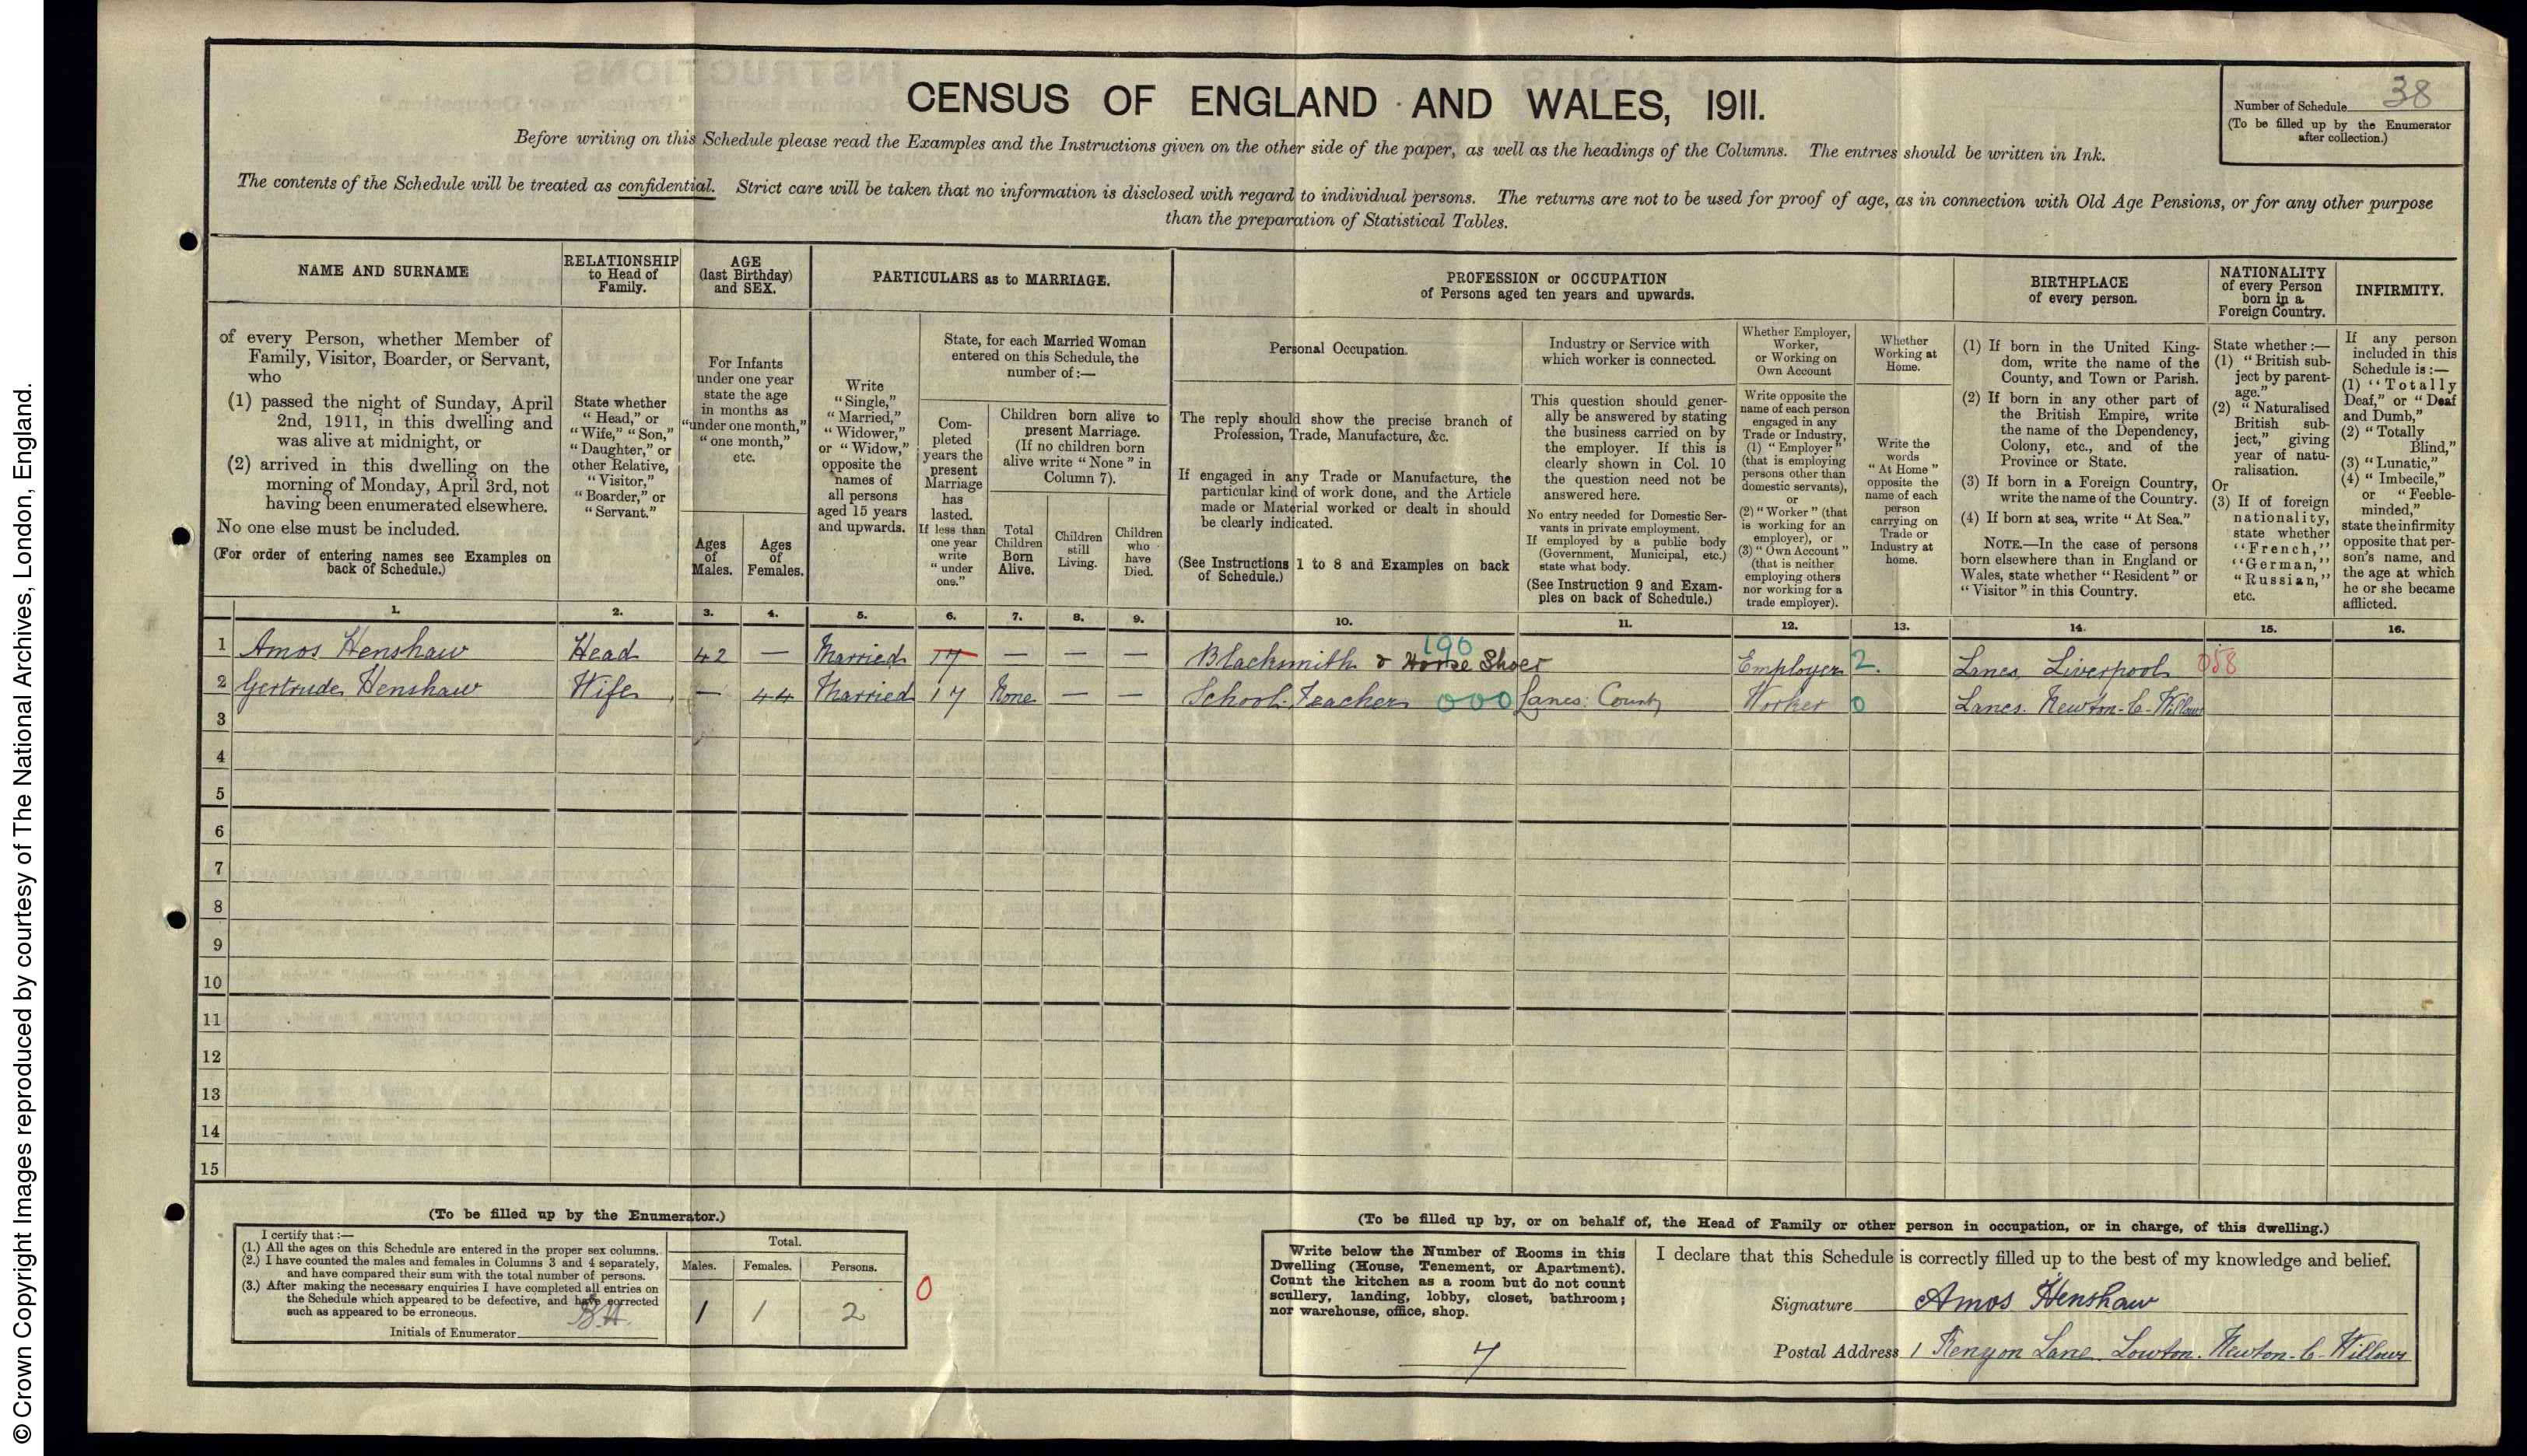 © Crown Copyright Images reproduced by courtesy of The National Archives, London, England.
CENSUS OF ENGLAND AND WALES, 1911.
Number of Schedule 38
(To be filled up by the Enumerator
after collection.)
Before writing on this Schedule please read the Examples and the Instructions given on the other side of the paper, as well as the headings of the Columns. The entries should be written in Ink.
The contents of the Schedule will be treated as confidential. Strict care will be taken that no information is disclosed with regard to individual persons. The returns are not to be used for proof of age, as in connection with Old Age Pensions, or for any other purpose
than the preparation of Statistical Tables.
NAME AND SURNAME
of every Person, whether Member of
Family, Visitor, Boarder, or Servant,
who
(1) passed the night of Sunday, April
2nd, 1911, in this dwelling and
was alive at midnight, or
(2) arrived in this dwelling on the
morning of Monday, April 3rd, not
having been enumerated elsewhere.
No one else must be included.
(For order of entering names see Examples on
back of Schedule.)
RELATIONSHIP
to Head of
Family.
State whether
"Head," or
"Wife," "Son,"
"Daughter," or
other Relative,
"Visitor,"
"Boarder," or
"Servant."
AGE
(last Birthday)
and SEX.
For Infants
under one year
state the age
in months as
"under one month,"
"one month,"
etc.
Ages
of
Males.
Ages
of
Females.
PARTICULARS as to MARRIAGE.
Write
"Single,"
"Married,"
"Widower,"
or "Widow,"
opposite the
names of
all persons
aged 15 years
and upwards.
State, for each Married Woman
entered on this Schedule, the
number of :—
Com-
pleted
years the
present
Marriage
has
lasted.
If less than
one year
write
"under
one."
Children born alive to
present Marriage.
(If no children born
alive write "None" in
Column 7).
Total
Children
Born
Alive.
Children
still
Living.
Children
who
have
Died.
PROFESSION or OCCUPATION
of Persons aged ten years and upwards.
Personal Occupation.
The reply should show the precise branch of
Profession, Trade, Manufacture, &c.
If engaged in any Trade or Manufacture, the
particular kind of work done, and the Article
made or Material worked or dealt in should
be clearly indicated.
(See Instructions 1 to 8 and Examples on back
of Schedule.)
Industry or Service with
which worker is connected.
This question should gener-
ally be answered by stating
the business carried on by
the employer. If this is
clearly shown in Col. 10
the question need not be
answered here.
No entry needed for Domestic Ser-
vants in private employment.
If employed by a public body
(Government, Municipal, etc.)
state what body.
(See Instruction 9 and Exam-
ples on back of Schedule.)
Whether Employer,
Worker,
or Working on
Own Account
Write opposite the
name of each person
engaged in any
Trade or Industry,
(1) "Employer"
(that is employing
persons other than
domestic servants),
or
(2) "Worker" (that
is working for an
employer), or
(3) "Own Account"
(that is neither
employing others
nor working for a
trade employer).
Whether
Working at
Home.
Write the
words
"At Home"
opposite the
name of each
person
carrying on
Trade or
Industry at
home.
BIRTHPLACE
of every person.
(1) If born in the United King-
dom, write the name of the
County, and Town or Parish.
(2) If born in any other part of
the British Empire, write
the name of the Dependency,
Colony, etc., and of the
Province or State.
(3) If born in a Foreign Country,
write the name of the Country.
(4) If born at sea, write "At Sea."
NOTE.—In the case of persons
born elsewhere than in England or
Wales, state whether "Resident" or
"Visitor" in this Country.
NATIONALITY
of every Person
born in a
Foreign Country.
State whether :—
(1) "British sub-
ject by parent-
age."
(2) "Naturalised
British sub-
ject," giving
year of natu-
ralisation.
Or
(3) If of foreign
nationality,
state whether
"French,"
"German,"
"Russian,"
etc.
INFIRMITY.
If any person
included in this
Schedule is :—
(1) "Totally
Deaf," or "Deaf
and Dumb,"
(2) "Totally
Blind,"
(3) "Lunatic,"
(4) "Imbecile,"
or "Feeble-
minded,"
state the infirmity
opposite that per-
son's name, and
the age at which
he or she became
afflicted.
1. 2. 3. 4. 5. 6. 7. 8. 9. 10. 11. 12. 13. 14. 15. 16.
196
1 Amos Henshaw Head 42 — Married 17 — — — Blacksmith & Horse Shoer Employer 2. Lancs, Liverpool 058
2 Gertrude Henshaw Wife — 44 Married 17 None — — School-Teacher 000 Lancs: County Worker 0 Lancs. Newton-le-Willows
3
4
5
6
7
8
9
10
11
12
13
14
15
(To be filled up by the Enumerator.)
I certify that :—
(1.) All the ages on this Schedule are entered in the proper sex columns.
(2.) I have counted the males and females in Columns 3 and 4 separately,
and have compared their sum with the total number of persons.
(3.) After making the necessary enquiries I have completed all entries on
the Schedule which appeared to be defective, and have corrected
such as appeared to be erroneous.
Initials of Enumerator
Total.
Males. Females. Persons.
1 1 2
0
(To be filled up by, or on behalf of, the Head of Family or other person in occupation, or in charge, of this dwelling.)
Write below the Number of Rooms in this
Dwelling (House, Tenement, or Apartment).
Count the kitchen as a room but do not count
scullery, landing, lobby, closet, bathroom;
nor warehouse, office, shop.
7
I declare that this Schedule is correctly filled up to the best of my knowledge and belief.
Signature Amos Henshaw
Postal Address 1 Kenyon Lane. Lowton. Newton-le-Willows